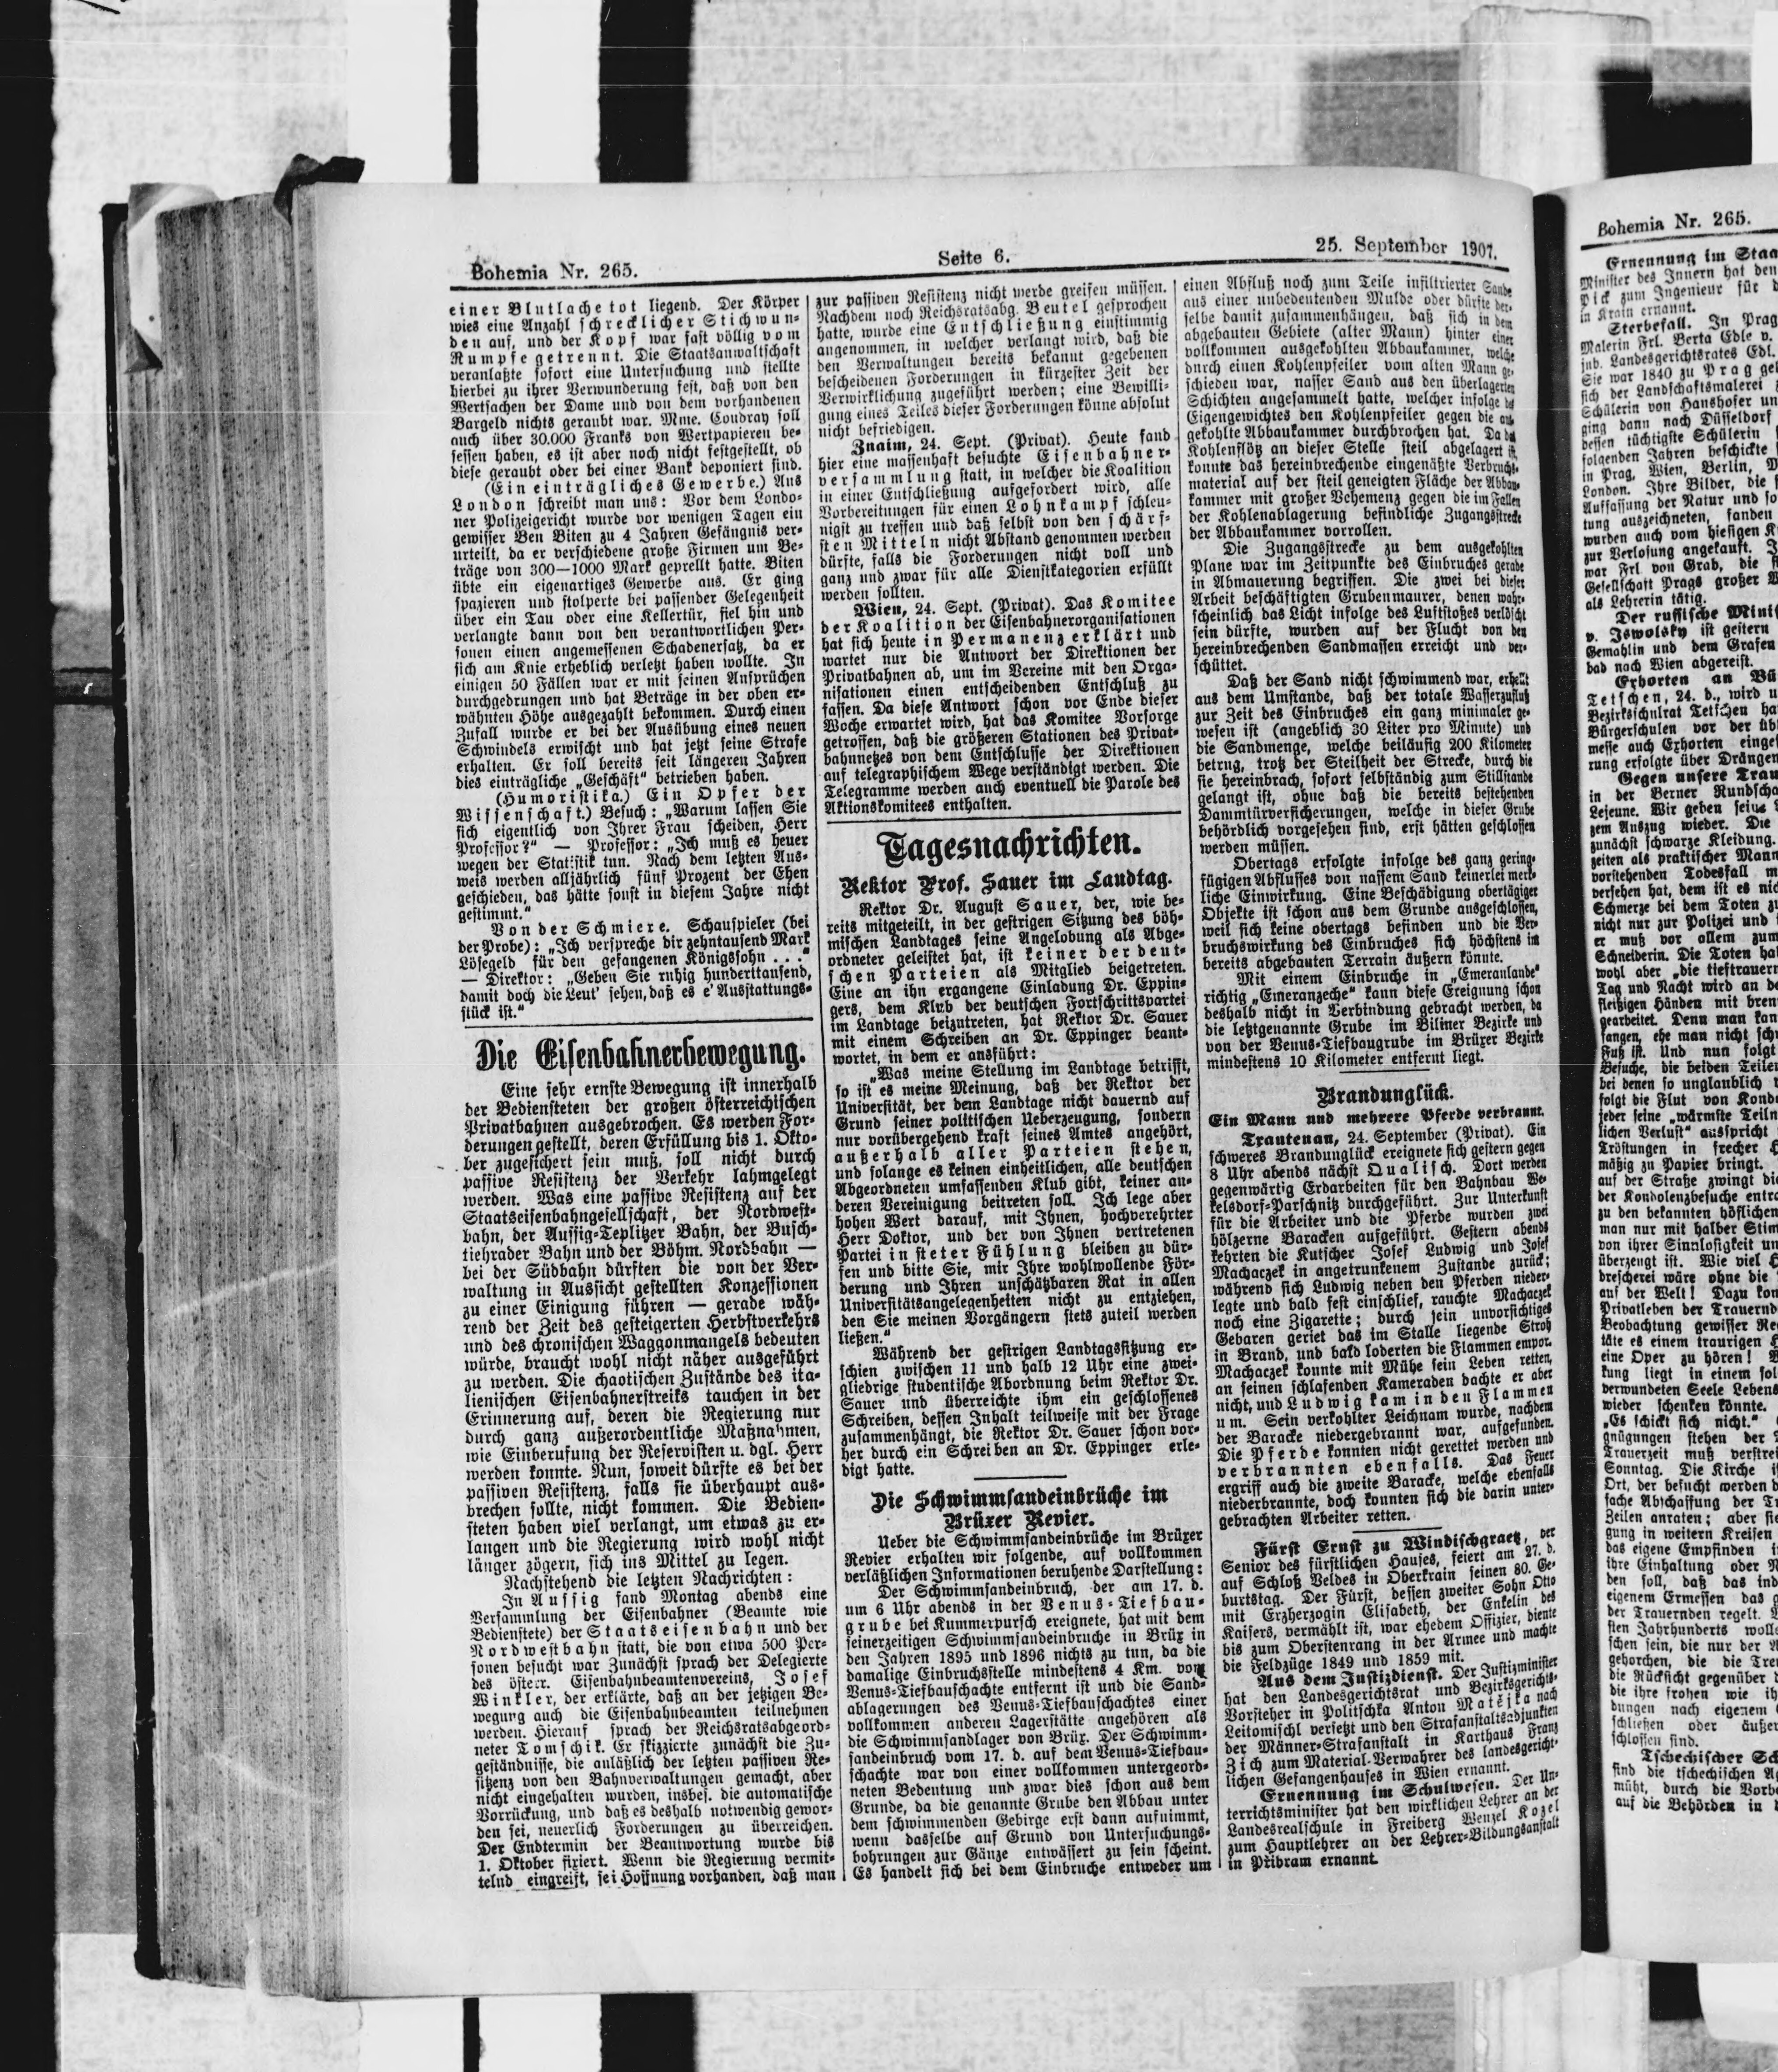 Bohemia Nr. 265.
Seite 6.
25. September 1907.
einer Blutlache tot liegend. Der Körper
wies eine Anzahl schrecklicher Stichwun-
den auf, und der Kopf war fast völlig vom
Rumpfe getrennt. Die Staatsanwaltschaft
veranlaßte sofort eine Untersuchung und stellte
hierbei zu ihrer Verwunderung fest, daß von den
Wertsachen der Dame und von dem vorhandenen
Bargeld nichts geraubt war. Mme. Coudray soll
auch über 30.000 Franks von Wertpapieren be-
sessen haben, es ist aber noch nicht festgestellt, ob
diese geraubt oder bei einer Bank deponiert sind.
(Ein einträgliches Gewerbe.) Aus
London schreibt man uns: Vor dem Londo-
ner Polizeigericht wurde vor wenigen Tagen ein
gewisser Ben Biten zu 4 Jahren Gefängnis ver-
urteilt, da er verschiedene große Firmen um Be-
träge von 300—1000 Mark geprellt hatte. Biten
übte ein eigenartiges Gewerbe aus. Er ging
spazieren und stolperte bei passender Gelegenheit
über ein Tau oder eine Kellertür, fiel hin und
verlangte dann von den verantwortlichen Per-
sonen einen angemessenen Schadenersatz, da er
sich am Knie erheblich verletzt haben wollte. In
einigen 50 Fällen war er mit seinen Ansprüchen
durchgedrungen und hat Beträge in der oben er-
wähnten Höhe ausgezahlt bekommen. Durch einen
Zufall wurde er bei der Ausübung eines neuen
Schwindels erwischt und hat jetzt seine Strafe
erhalten. Er soll bereits seit längeren Jahren
dies einträgliche „Geschäft“ betrieben haben.
(Humoristika.) Ein Opfer der
Wissenschaft.) Besuch: „Warum lassen Sie
sich eigentlich von Ihrer Frau scheiden, Herr
Professor?“ — Professor: „Ich muß es heuer
wegen der Statistik tun. Nach dem letzten Aus-
weis werden alljährlich fünf Prozent der Ehen
geschieden, das hätte sonst in diesem Jahre nicht
gestimmt.“
Von der Schmiere. Schauspieler (bei
der Probe): „Ich verspreche dir zehntausend Mark
Lösegeld für den gefangenen Königssohn . . .“
— Direktor: „Geben Sie ruhig hunderttausend,
damit doch die Leut' sehen, daß es e' Ausstattungs-
stück ist.“
Die Eisenbahnerbewegung.
Eine sehr ernste Bewegung ist innerhalb
der Bediensteten der großen österreichischen
Privatbahnen ausgebrochen. Es werden For-
derungen gestellt, deren Erfüllung bis 1. Okto-
ber zugesichert sein muß, soll nicht durch
passive Resistenz der Verkehr lahmgelegt
werden. Was eine passive Resistenz auf der
Staatseisenbahngesellschaft, der Nordwest-
bahn, der Aussig-Teplitzer Bahn, der Busch-
tiehrader Bahn und der Böhm. Nordbahn —
bei der Südbahn dürften die von der Ver-
waltung in Aussicht gestellten Konzessionen
zu einer Einigung führen — gerade wäh-
rend der Zeit des gesteigerten Herbstverkehrs
und des chronischen Waggonmangels bedeuten
würde, braucht wohl nicht näher ausgeführt
zu werden. Die chaotischen Zustände des ita-
lienischen Eisenbahnerstreiks tauchen in der
Erinnerung auf, deren die Regierung nur
durch ganz außerordentliche Maßnahmen,
wie Einberufung der Reservisten u. dgl. Herr
werden konnte. Nun, soweit dürfte es bei der
passiven Resistenz, falls sie überhaupt aus-
brechen sollte, nicht kommen. Die Bedien-
steten haben viel verlangt, um etwas zu er-
langen und die Regierung wird wohl nicht
länger zögern, sich ins Mittel zu legen.
Nachstehend die letzten Nachrichten:
In Aussig fand Montag abends eine
Versammlung der Eisenbahner (Beamte wie
Bedienstete) der Staatseisenbahn und der
Nordwestbahn statt, die von etwa 500 Per-
sonen besucht war Zunächst sprach der Delegierte
des österr. Eisenbahnbeamtenvereins, Josef
Winkler, der erklärte, daß an der jetzigen Be-
wegung auch die Eisenbahnbeamten teilnehmen
werden. Hierauf sprach der Reichsratsabgeord-
neter Tomschik. Er skizzierte zunächst die Zu-
geständnisse, die anläßlich der letzten passiven Re-
sistenz von den Bahnverwaltungen gemacht, aber
nicht eingehalten wurden, insbes. die automatische
Vorrückung, und daß es deshalb notwendig gewor-
den sei, neuerlich Forderungen zu überreichen.
Der Endtermin der Beantwortung wurde bis
1. Oktober fixiert. Wenn die Regierung vermit-
telnd eingreift, sei Hoffnung vorhanden, daß man
zur passiven Resistenz nicht werde greifen müssen.
Nachdem noch Reichsratsabg. Beutel gesprochen
hatte, wurde eine Entschließung einstimmig
angenommen, in welcher verlangt wird, daß die
den Verwaltungen bereits bekannt gegebenen
bescheidenen Forderungen in kürzester Zeit der
Verwirklichung zugeführt werden; eine Bewilli-
gung eines Teiles dieser Forderungen könne absolut
nicht befriedigen.
Znaim, 24. Sept. (Privat). Heute fand
hier eine massenhaft besuchte Eisenbahner-
versammlung statt, in welcher die Koalition
in einer Entschließung aufgefordert wird, alle
Vorbereitungen für einen Lohnkampf schleu-
nigst zu treffen und daß selbst von den schärf-
sten Mitteln nicht Abstand genommen werden
dürfte, falls die Forderungen nicht voll und
ganz und zwar für alle Dienstkategorien erfüllt
werden sollten.
Wien, 24. Sept. (Privat). Das Komitee
der Koalition der Eisenbahnerorganisationen
hat sich heute in Permanenz erklärt und
wartet nur die Antwort der Direktionen der
Privatbahnen ab, um im Vereine mit den Orga-
nisationen einen entscheidenden Entschluß zu
fassen. Da diese Antwort schon vor Ende dieser
Woche erwartet wird, hat das Komitee Vorsorge
getroffen, daß die größeren Stationen des Privat-
bahnnetzes von dem Entschlusse der Direktionen
auf telegraphischem Wege verständigt werden. Die
Telegramme werden auch eventuell die Parole des
Aktionskomitees enthalten.
Tagesnachrichten.
Rektor Prof. Sauer im Landtag.
Rektor Dr. August Sauer, der, wie be-
reits mitgeteilt, in der gestrigen Sitzung des böh-
mischen Landtages seine Angelobung als Abge-
ordneter geleistet hat, ist keiner der deut-
schen Parteien als Mitglied beigetreten.
Eine an ihn ergangene Einladung Dr. Eppin-
gers, dem Klub der deutschen Fortschrittspartei
im Landtage beizutreten, hat Rektor Dr. Sauer
mit einem Schreiben an Dr. Eppinger beant-
wortet, in dem er ausführt:
„Was meine Stellung im Landtage betrifft,
so ist es meine Meinung, daß der Rektor der
Universität, der dem Landtage nicht dauernd auf
Grund seiner politischen Ueberzeugung, sondern
nur vorübergehend kraft seines Amtes angehört,
außerhalb aller Parteien stehen,
und solange es keinen einheitlichen, alle deutschen
Abgeordneten umfassenden Klub gibt, keiner an-
deren Vereinigung beitreten soll. Ich lege aber
hohen Wert darauf, mit Ihnen, hochverehrter
Herr Doktor, und der von Ihnen vertretenen
Partei in steter Fühlung bleiben zu dür-
fen und bitte Sie, mir Ihre wohlwollende För-
derung und Ihren unschätzbaren Rat in allen
Universitätsangelegenheiten nicht zu entziehen,
den Sie meinen Vorgängern stets zuteil werden
ließen.“
Während der gestrigen Landtagssitzung er-
schien zwischen 11 und halb 12 Uhr eine zwei-
gliedrige studentische Abordnung beim Rektor Dr.
Sauer und überreichte ihm ein geschlossenes
Schreiben, dessen Inhalt teilweise mit der Frage
zusammenhängt, die Rektor Dr. Sauer schon vor-
her durch ein Schreiben an Dr. Eppinger erle-
digt hatte.
Die Schwimmsandeinbrüche im
Brüxer Revier.
Ueber die Schwimmsandeinbrüche im Brüxer
Revier erhalten wir folgende, auf vollkommen
verläßlichen Informationen beruhende Darstellung:
Der Schwimmsandeinbruch, der am 17. d.
um 6 Uhr abends in der Venus-Tiefbau-
grube bei Kummerpursch ereignete, hat mit dem
seinerzeitigen Schwimmsandeinbruche in Brüx in
den Jahren 1895 und 1896 nichts zu tun, da die
damalige Einbruchsstelle mindestens 4 Km. vom
Venus-Tiefbauschachte entfernt ist und die Sand-
ablagerungen des Venus-Tiefbauschachtes einer
vollkommen anderen Lagerstätte angehören als
die Schwimmsandlager von Brüx. Der Schwimm-
sandeinbruch vom 17. d. auf dem Venus-Tiefbau-
schachte war von einer vollkommen untergeord-
neten Bedeutung und zwar dies schon aus dem
Grunde, da die genannte Grube den Abbau unter
dem schwimmenden Gebirge erst dann aufnimmt,
wenn dasselbe auf Grund von Untersuchungs-
bohrungen zur Gänze entwässert zu sein scheint.
Es handelt sich bei dem Einbruche entweder um
einen Abfluß noch zum Teile infiltrierter Sande
aus einer unbedeutenden Mulde oder dürfte der-
selbe damit zusammenhängen, daß sich in dem
abgebauten Gebiete (alter Mann) hinter einer
vollkommen ausgekohlten Abbaukammer, welche
durch einen Kohlenpfeiler vom alten Mann ge-
schieden war, nasser Sand aus den überlagerten
Schichten angesammelt hatte, welcher infolge des
Eigengewichtes den Kohlenpfeiler gegen die aus-
gekohlte Abbaukammer durchbrochen hat. Da das
Kohlenflötz an dieser Stelle steil abgelagert ist,
konnte das hereinbrechende eingenäßte Verbruchs-
material auf der steil geneigten Fläche der Abbau-
kammer mit großer Vehemenz gegen die im Fallen
der Kohlenablagerung befindliche Zugangsstrecke
der Abbaukammer vorrollen.
Die Zugangsstrecke zu dem ausgekohlten
Plane war im Zeitpunkte des Einbruches gerade
in Abmauerung begriffen. Die zwei bei dieser
Arbeit beschäftigten Grubenmaurer, denen wahr-
scheinlich das Licht infolge des Luftstoßes verlöscht
sein dürfte, wurden auf der Flucht von den
hereinbrechenden Sandmassen erreicht und ver-
schüttet.
Daß der Sand nicht schwimmend war, erhellt
aus dem Umstande, daß der totale Wasserzufluß
zur Zeit des Einbruches ein ganz minimaler ge-
wesen ist (angeblich 30 Liter pro Minute) und
die Sandmenge, welche beiläufig 200 Kilometer
betrug, trotz der Steilheit der Strecke, durch die
sie hereinbrach, sofort selbständig zum Stillstande
gelangt ist, ohne daß die bereits bestehenden
Dammtürversicherungen, welche in dieser Grube
behördlich vorgesehen sind, erst hätten geschlossen
werden müssen.
Obertags erfolgte infolge des ganz gering-
fügigen Abflusses von nassem Sand keinerlei merk-
liche Einwirkung. Eine Beschädigung obertägiger
Objekte ist schon aus dem Grunde ausgeschlossen,
weil sich keine obertags befinden und die Ver-
bruchswirkung des Einbruches sich höchstens im
bereits abgebauten Terrain äußern könnte.
Mit einem Einbruche in „Emeranlande“
richtig „Emeranzeche“ kann diese Ereignung schon
deshalb nicht in Verbindung gebracht werden, da
die letztgenannte Grube im Biliner Bezirke und
von der Venus-Tiefbaugrube im Brüxer Bezirke
mindestens 10 Kilometer entfernt liegt.
Brandunglück.
Ein Mann und mehrere Pferde verbrannt.
Trautenau, 24. September (Privat). Ein
schweres Brandunglück ereignete sich gestern gegen
8 Uhr abends nächst Qualisch. Dort werden
gegenwärtig Erdarbeiten für den Bahnbau We-
kelsdorf-Parschnitz durchgeführt. Zur Unterkunft
für die Arbeiter und die Pferde wurden zwei
hölzerne Baracken aufgeführt. Gestern abends
kehrten die Kutscher Josef Ludwig und Josef
Machaczek in angetrunkenem Zustande zurück;
während sich Ludwig neben den Pferden nieder-
legte und bald fest einschlief, rauchte Machaczek
noch eine Zigarette; durch sein unvorsichtiges
Gebaren geriet das im Stalle liegende Stroh
in Brand, und bald loderten die Flammen empor.
Machaczek konnte mit Mühe sein Leben retten,
an seinen schlafenden Kameraden dachte er aber
nicht, und Ludwig kam in den Flammen
um. Sein verkohlter Leichnam wurde, nachdem
der Baracke niedergebrannt war, aufgefunden.
Die Pferde konnten nicht gerettet werden und
verbrannten ebenfalls. Das Feuer
ergriff auch die zweite Baracke, welche ebenfalls
niederbrannte, doch konnten sich die darin unter-
gebrachten Arbeiter retten.
Fürst Ernst zu Windischgraetz, der
Senior des fürstlichen Hauses, feiert am 27. d.
auf Schloß Veldes in Oberkrain seinen 80. Ge-
burtstag. Der Fürst, dessen zweiter Sohn Otto
mit Erzherzogin Elisabeth, der Enkelin des
Kaisers, vermählt ist, war ehedem Offizier, diente
bis zum Oberstenrang in der Armee und machte
die Feldzüge 1849 und 1859 mit.
Aus dem Justizdienst. Der Justizminister
hat den Landesgerichtsrat und Bezirksgerichts-
Vorsteher in Politschka Anton Matějka nach
Leitomischl versetzt und den Strafanstaltsadjunkten
der Männer-Strafanstalt in Karthaus Franz
Zich zum Material-Verwahrer des landesgericht-
lichen Gefangenhauses in Wien ernannt.
Ernennung im Schulwesen. Der Un-
terrichtsminister hat den wirklichen Lehrer an der
Landesrealschule in Freiberg Wenzel Kozel
zum Hauptlehrer an der Lehrer-Bildungsanstalt
in Přibram ernannt.
Bohemia Nr. 265.
Ernennung im Staa
Minister des Innern hat den
Pick zum Ingenieur für
in Krain ernannt.
Sterbefall. In Prag
Malerin Frl. Berta Edle v.
jub. Landesgerichtsrates Edl.
Sie war 1840 zu Prag
sich der Landschaftsmalerei
Schülerin von Haushofer un
ging dann nach Düsseldorf
dessen tüchtigste Schülerin
folgenden Jahren beschickte
in Prag, Wien, Berlin,
London. Ihre Bilder, die
Auffassung der Natur und so
tung auszeichneten, fanden
wurden auch vom hiesigen K
zur Verlosung angekauft.
war Frl. von Grab, die
Gesellschaft Prags großer
als Lehrerin tätig.
Der russische Minis
v. Iswolsky ist gestern
Gemahlin und dem Grafen
bad nach Wien abgereist.
Exhorten an Bü
Tetschen, 24. d., wird u
Bezirksschulrat Tetschen ha
Bürgerschulen vor der üb
messe auch Exhorten einge
rung erfolgte über Drängen
Gegen unsere Trau
in der Berner Rundscha
Lejeune. Wir geben seine
zem Auszug wieder. Die
zunächst schwarze Kleidung.
zeiten als praktischer Mann
vorstehenden Todesfall m
versehen hat, dem ist es nic
Schmerze bei dem Toten zu
nicht nur zur Polizei und
er muß vor allem zum
Schneiderin. Die Toten ha
wohl aber „die tieftrauern
Tag und Nacht wird an de
fleißigen Händen mit bren
gearbeitet. Denn man kan
fangen, ehe man nicht sch
Fuß ist. Und nun folgt
Besuche, die beiden Teilen
bei denen so unglaublich
folgt die Flut von Kondo
jeder seine „wärmste Teiln
lichen Verlust“ ausspricht
Tröstungen in frecher H
mäßig zu Papier bringt.
auf der Straße zwingt die
der Kondolenzbesuche entra
zu den bekannten höflichen
man nur mit halber Stim
von ihrer Sinnlosigkeit un
überzeugt ist. Wie viel
brescherei wäre ohne die
auf der Welt! Dazu kom
Privatleben der Trauernd
Beobachtung gewisser Re
täte es einem traurigen H
eine Oper zu hören!
kung liegt in einem sol
verwundeten Seele Lebens
wieder schenken könnte.
„Es schickt sich nicht.“
gnügungen stehen der
Trauerzeit muß verstrei
Sonntag. Die Kirche
Ort, der besucht werden d
fache Abschaffung der Tr
Zeilen anraten; aber sie
gung in weitern Kreisen
das eigene Empfinden i
ihre Einhaltung oder N
den soll, daß das ind
eigenem Ermessen das
der Trauernden regelt.
sten Jahrhunderts woll
schen sein, die nur der A
gehorchen, die die Tre
die Rücksicht gegenüber
die ihre frohen wie ih
dungen nach eigenem
schließen oder äußer
schlossen sind.
Tschechischer Sch
sind die tschechischen A
müht, durch die Vorbe
auf die Behörden in